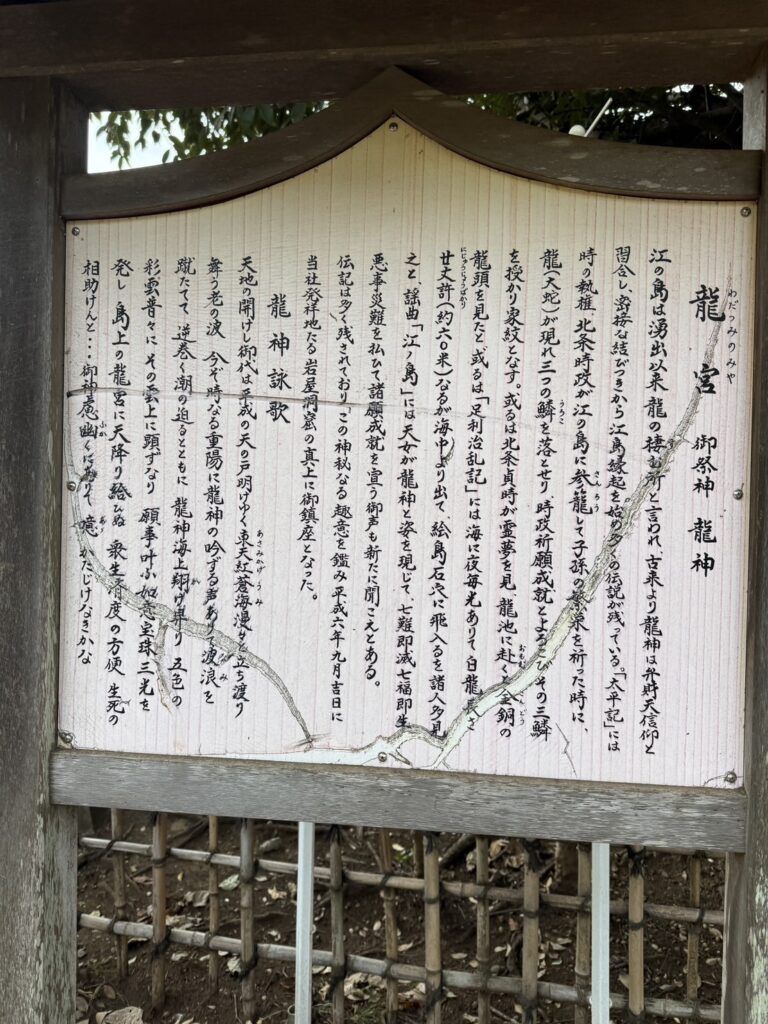 龍宮 御祭神 龍神
わだつみのみや
江の島は湧出以来 龍の棲む所と言われ、古来より龍神は弁財天信仰と
習合し、密接な結びつきから江島縁起を始め多くの伝説が残っている。「太平記」には
時の執権、北条時政が江の島に参籠して子孫の繁栄を祈った時に、
さんろう
龍(大蛇)が現れ三つの鱗を落とせり 時政祈願成就とよろこびその三鱗
うろこ
を授かり家紋となす。或るは北条貞時が霊夢を見、龍池に赴くと金銅の
龍頭を見たと、或るは「足利治乱記」には海に夜毎光ありて白龍長さ
廿丈許(約六〇米)なるが海中より出て、絵島石穴に飛入るを諸人多見
にじゅうじょうばかり
之と、謡曲「江ノ島」には天女が龍神と姿を現じて、七難即滅七福即生
悪事災難を払いて諸願成就を宣う御声も新たに聞こえとある。
伝記は多く残されており「この神秘なる趣意を鑑み平成六年九月吉日に
当社発祥地たる岩屋洞窟の真上に御鎮座となった。
龍神詠歌
天地の開けし御代は平成の天の戸明けゆく東天紅蒼海漫々と立ち渡り
あさみかげうみ
舞う老の波 今ぞ時なる重陽に龍神の吟ずる声あげて波浪を
なみ
蹴たてて 逆巻く潮の迫るとともに 龍神海上翔け昇り 五色の
か
彩雲普々に その雲上に顕ずなり 願事叶ふ如意宝珠三光を
発し 島上の龍宮に天降り給ひぬ 衆生済度の方便 生死の
相助けんと・・・御神慮幽くにありて 噫 かたじけなきかな
ふか
あゝ